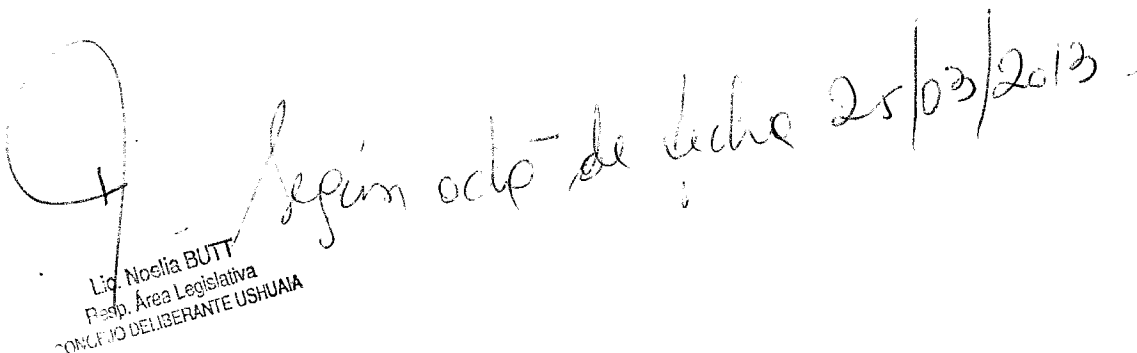 Según acta de fecha 25/03/2013.
Lic. Noelia BUTT
Resp. Área Legislativa
CONCEJO DELIBERANTE USHUAIA